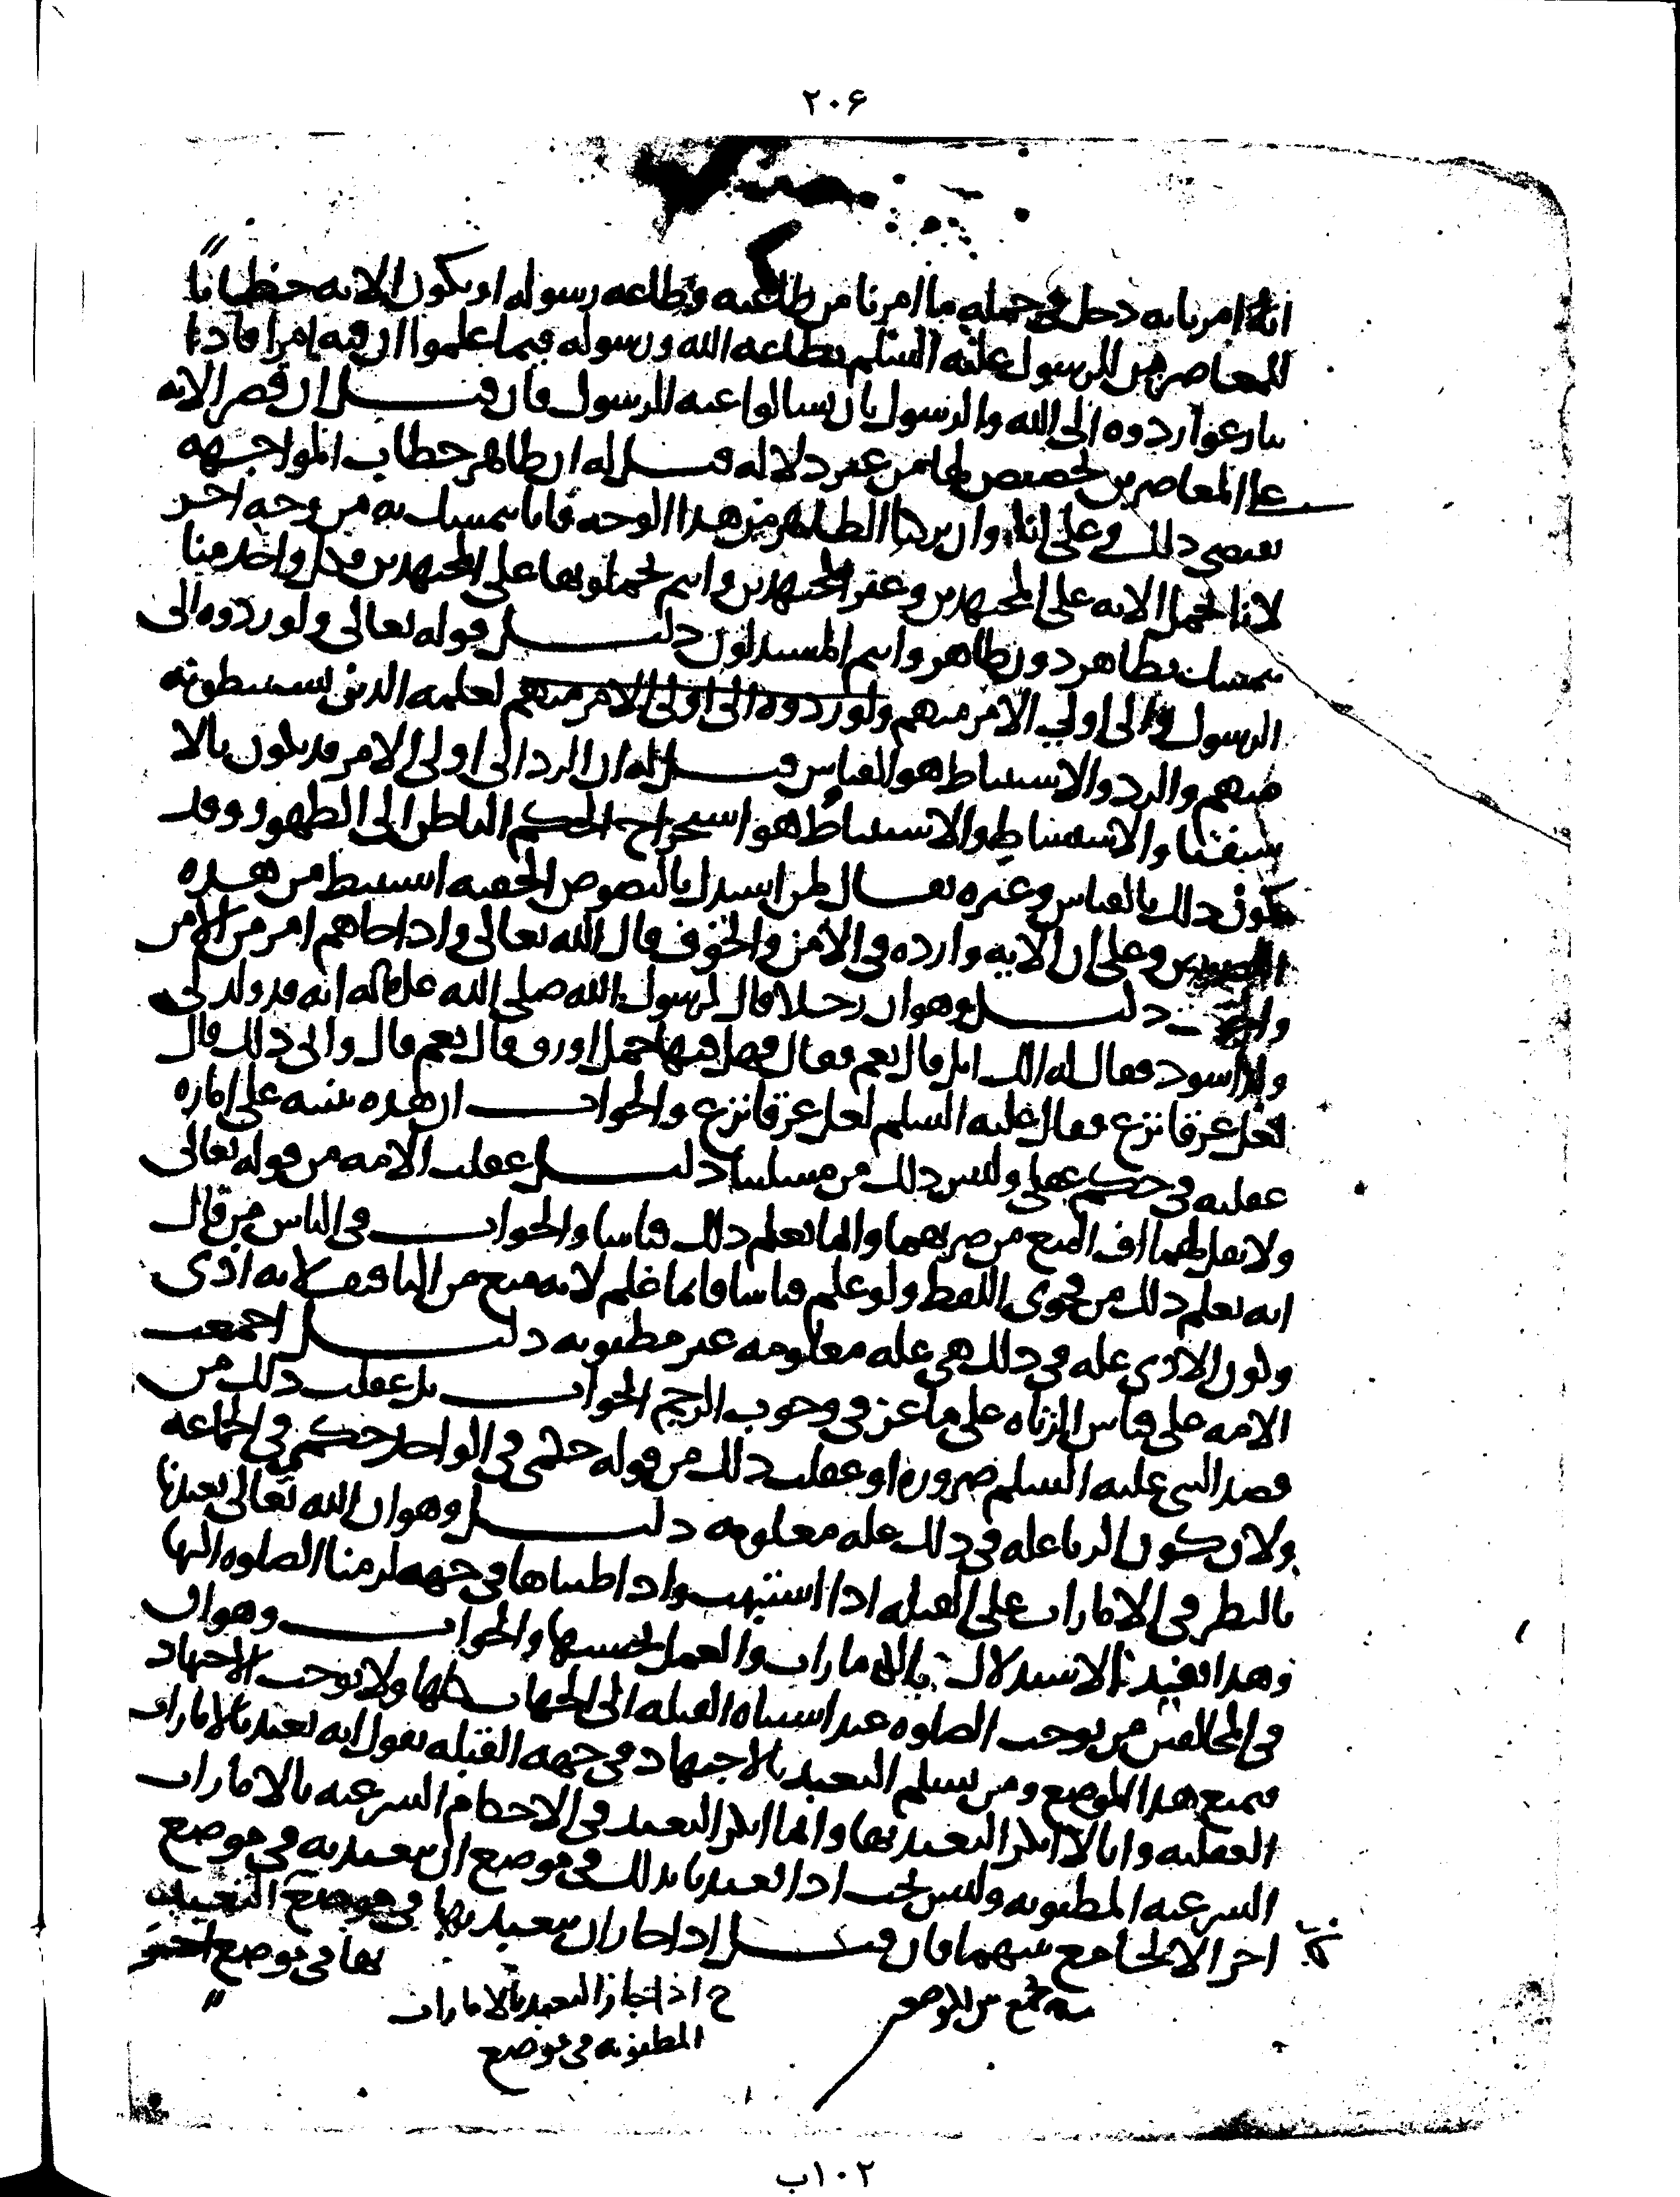 ٢٠۶
انه امرنا به دخل في جمله ما امرنا من طاعته وطاعه رسوله او يكون الايه خطابا
للمعاصرين للرسول عليه السلم بطاعه الله ورسوله فيما علموا ان فيه امرا فاذا
تنازعوا ردوه الى الله والرسول بان يسالوا عنه الرسول فان قيل ان قصر الايه
على المعاصرين تخصيص لها من غير دلاله قيل له ان ظاهر خطاب المواجهه
يقتضي ذلك وعلى انا وان تركنا الظاهر من هذا الوجه فانا نتمسك به من وجه اخر
لانا نحمل الايه على المجتهدين وغير المجتهدين وانتم تحملونها على المجتهدين وكل واحد منا
يتمسك بظاهر دون ظاهر وانتم المستدلون دليل قوله تعالى ولو ردوه الى
الرسول والى اولي الامر منهم ولو ردوه الى اولى الامر منهم لعلمه الذين يستنبطونه
منهم والرد والاستنباط هو القياس قيل له ان الرد الى اولى الامر قد يكون بالا
ستفتا والاستنباط هو استخراج الحكم الباطن الى الظهور وقد
يكون ذلك بالقياس وغيره يقال لمن استدل بالنصوص الخفيه استنبط من هذه
النصوص وعلى ان الايه وارده في الامن والخوف قال الله تعالى واذا جاهم امر من الامن
دليل وهو ان رجلا قال لرسول الله صلى الله عليه انه قد ولد لي
ولد اسود فقال له الك ابل قال نعم فقال فهل فيها جمل اورق قال نعم قال واني ذلك قال
لعل عرقا نزع فقال عليه السلم لعل عرقا نزع والجواب ان هذه تنبيه على اماره
عقليه في حكم عقلي وليس ذلك من مسلتنا دليل عقلت الامه من قوله تعالى
ولا تقل لهما اف المنع من ضربهما وانما نعلم ذلك قياسا والجواب في الناس من قال
انه نعلم ذلك من فحوى اللفظ ولو علم قياسا فانما علم لانه منع من التافيف لانه اذى
وكون الاذى عله في ذلك هي عله معلومه غير مظنونه دليل اجمعت
الامه على قياس الزناه على ماعز في وجوب الرجم الجواب بل عقلت ذلك من
قصد النبي عليه السلم ضروره او عقلت ذلك من قوله حكمي في الواحد حكمي في الجماعه
ولان كون الزنا عله في ذلك عله معلومه دليل وهو ان الله تعالى تعبدنا
بالنظر في الامارات على القبله اذا اشتبهت واذا ظنناها في جهه لزمنا الصلوه اليها
وهذا تعبد بالاستدلال بالامارات والعمل بحسبها والجواب وهو ان
في المخالفين من يوجب الصلوه عند اشتباه القبله الى الجهات كلها ولا يوجب الاجتهاد
فيمنع هذا الموضع ومن يسلم التعبد بالاجتهاد في جهه القبله يقول انه تعبد بالامارات
العقليه وانا لا انكر التعبد بها وانما انكر التعبد في الاحكام الشرعيه بالامارات
الشرعيه المظنونه وليس يجب اذا تعبدنا بذلك في موضع ان يتعبد به في موضع
اخر الا لجامع بينهما فان قيل اذا جاز ان يتعبد بها في موضع التعبد
بها في موضع اخر
ح اذا جاز التعبد بالامارات
المظنونه في موضع
١٠٢ب